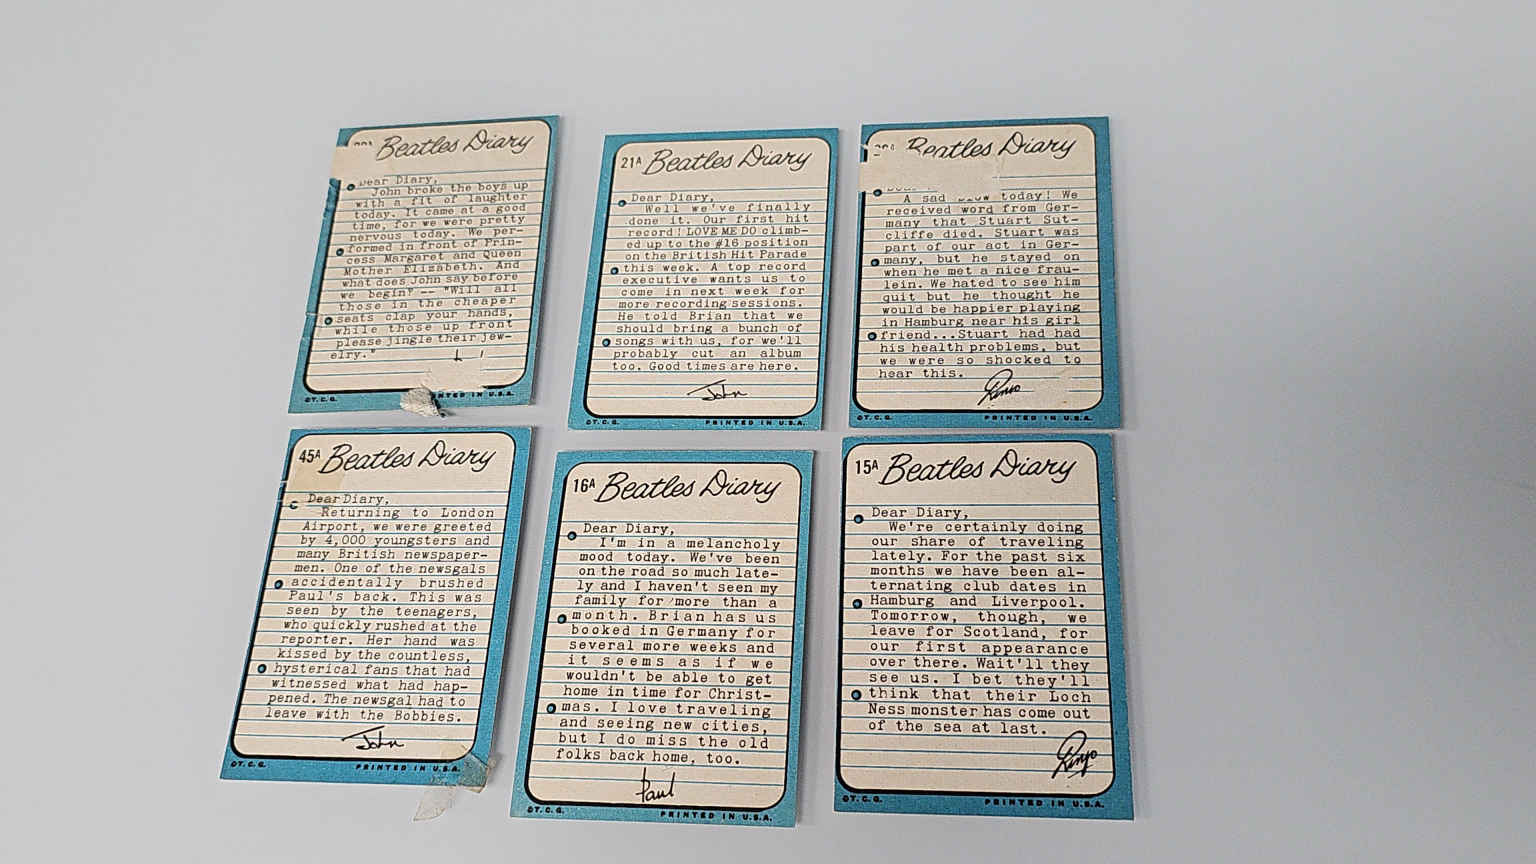 Beatles Diary
Dear Diary,
John broke the boys up
with a fit of laughter
today. It came at a good
time, for we were pretty
nervous today. We per-
formed in front of Prin-
cess Margaret and Queen
Mother Elizabeth. And
what does John say before
we begin? -- "Will all
those in the cheaper
seats clap your hands,
while those up front
please jingle their jew-
elry."
©T.C.G.
PRINTED IN U.S.A.
21A Beatles Diary
Dear Diary,
Well we've finally
done it. Our first hit
record! LOVE ME DO climb-
ed up to the #16 position
on the British Hit Parade
this week. A top record
executive wants us to
come in next week for
more recording sessions.
He told Brian that we
should bring a bunch of
songs with us, for we'll
probably cut an album
too. Good times are here.
John
©T.C.G. PRINTED IN U.S.A.
Beatles Diary
A sad blow today! We
received word from Ger-
many that Stuart Sut-
cliffe died. Stuart was
part of our act in Ger-
many, but he stayed on
when he met a nice frau-
lein. We hated to see him
quit but he thought he
would be happier playing
in Hamburg near his girl
friend...Stuart had had
his health problems, but
we were so shocked to
hear this.
Ringo
©T.C.G. PRINTED IN U.S.A.
45A Beatles Diary
Dear Diary,
Returning to London
Airport, we were greeted
by 4,000 youngsters and
many British newspaper-
men. One of the newsgals
accidentally brushed
Paul's back. This was
seen by the teenagers,
who quickly rushed at the
reporter. Her hand was
kissed by the countless,
hysterical fans that had
witnessed what had hap-
pened. The newsgal had to
leave with the Bobbies.
John
©T.C.G. PRINTED IN U.S.A.
16A Beatles Diary
Dear Diary,
I'm in a melancholy
mood today. We've been
on the road so much late-
ly and I haven't seen my
family for more than a
month. Brian has us
booked in Germany for
several more weeks and
it seems as if we
wouldn't be able to get
home in time for Christ-
mas. I love traveling
and seeing new cities,
but I do miss the old
folks back home, too.
Paul
©T.C.G. PRINTED IN U.S.A.
15A Beatles Diary
Dear Diary,
We're certainly doing
our share of traveling
lately. For the past six
months we have been al-
ternating club dates in
Hamburg and Liverpool.
Tomorrow, though, we
leave for Scotland, for
our first appearance
over there. Wait'll they
see us. I bet they'll
think that their Loch
Ness monster has come out
of the sea at last.
Ringo
©T.C.G. PRINTED IN U.S.A.